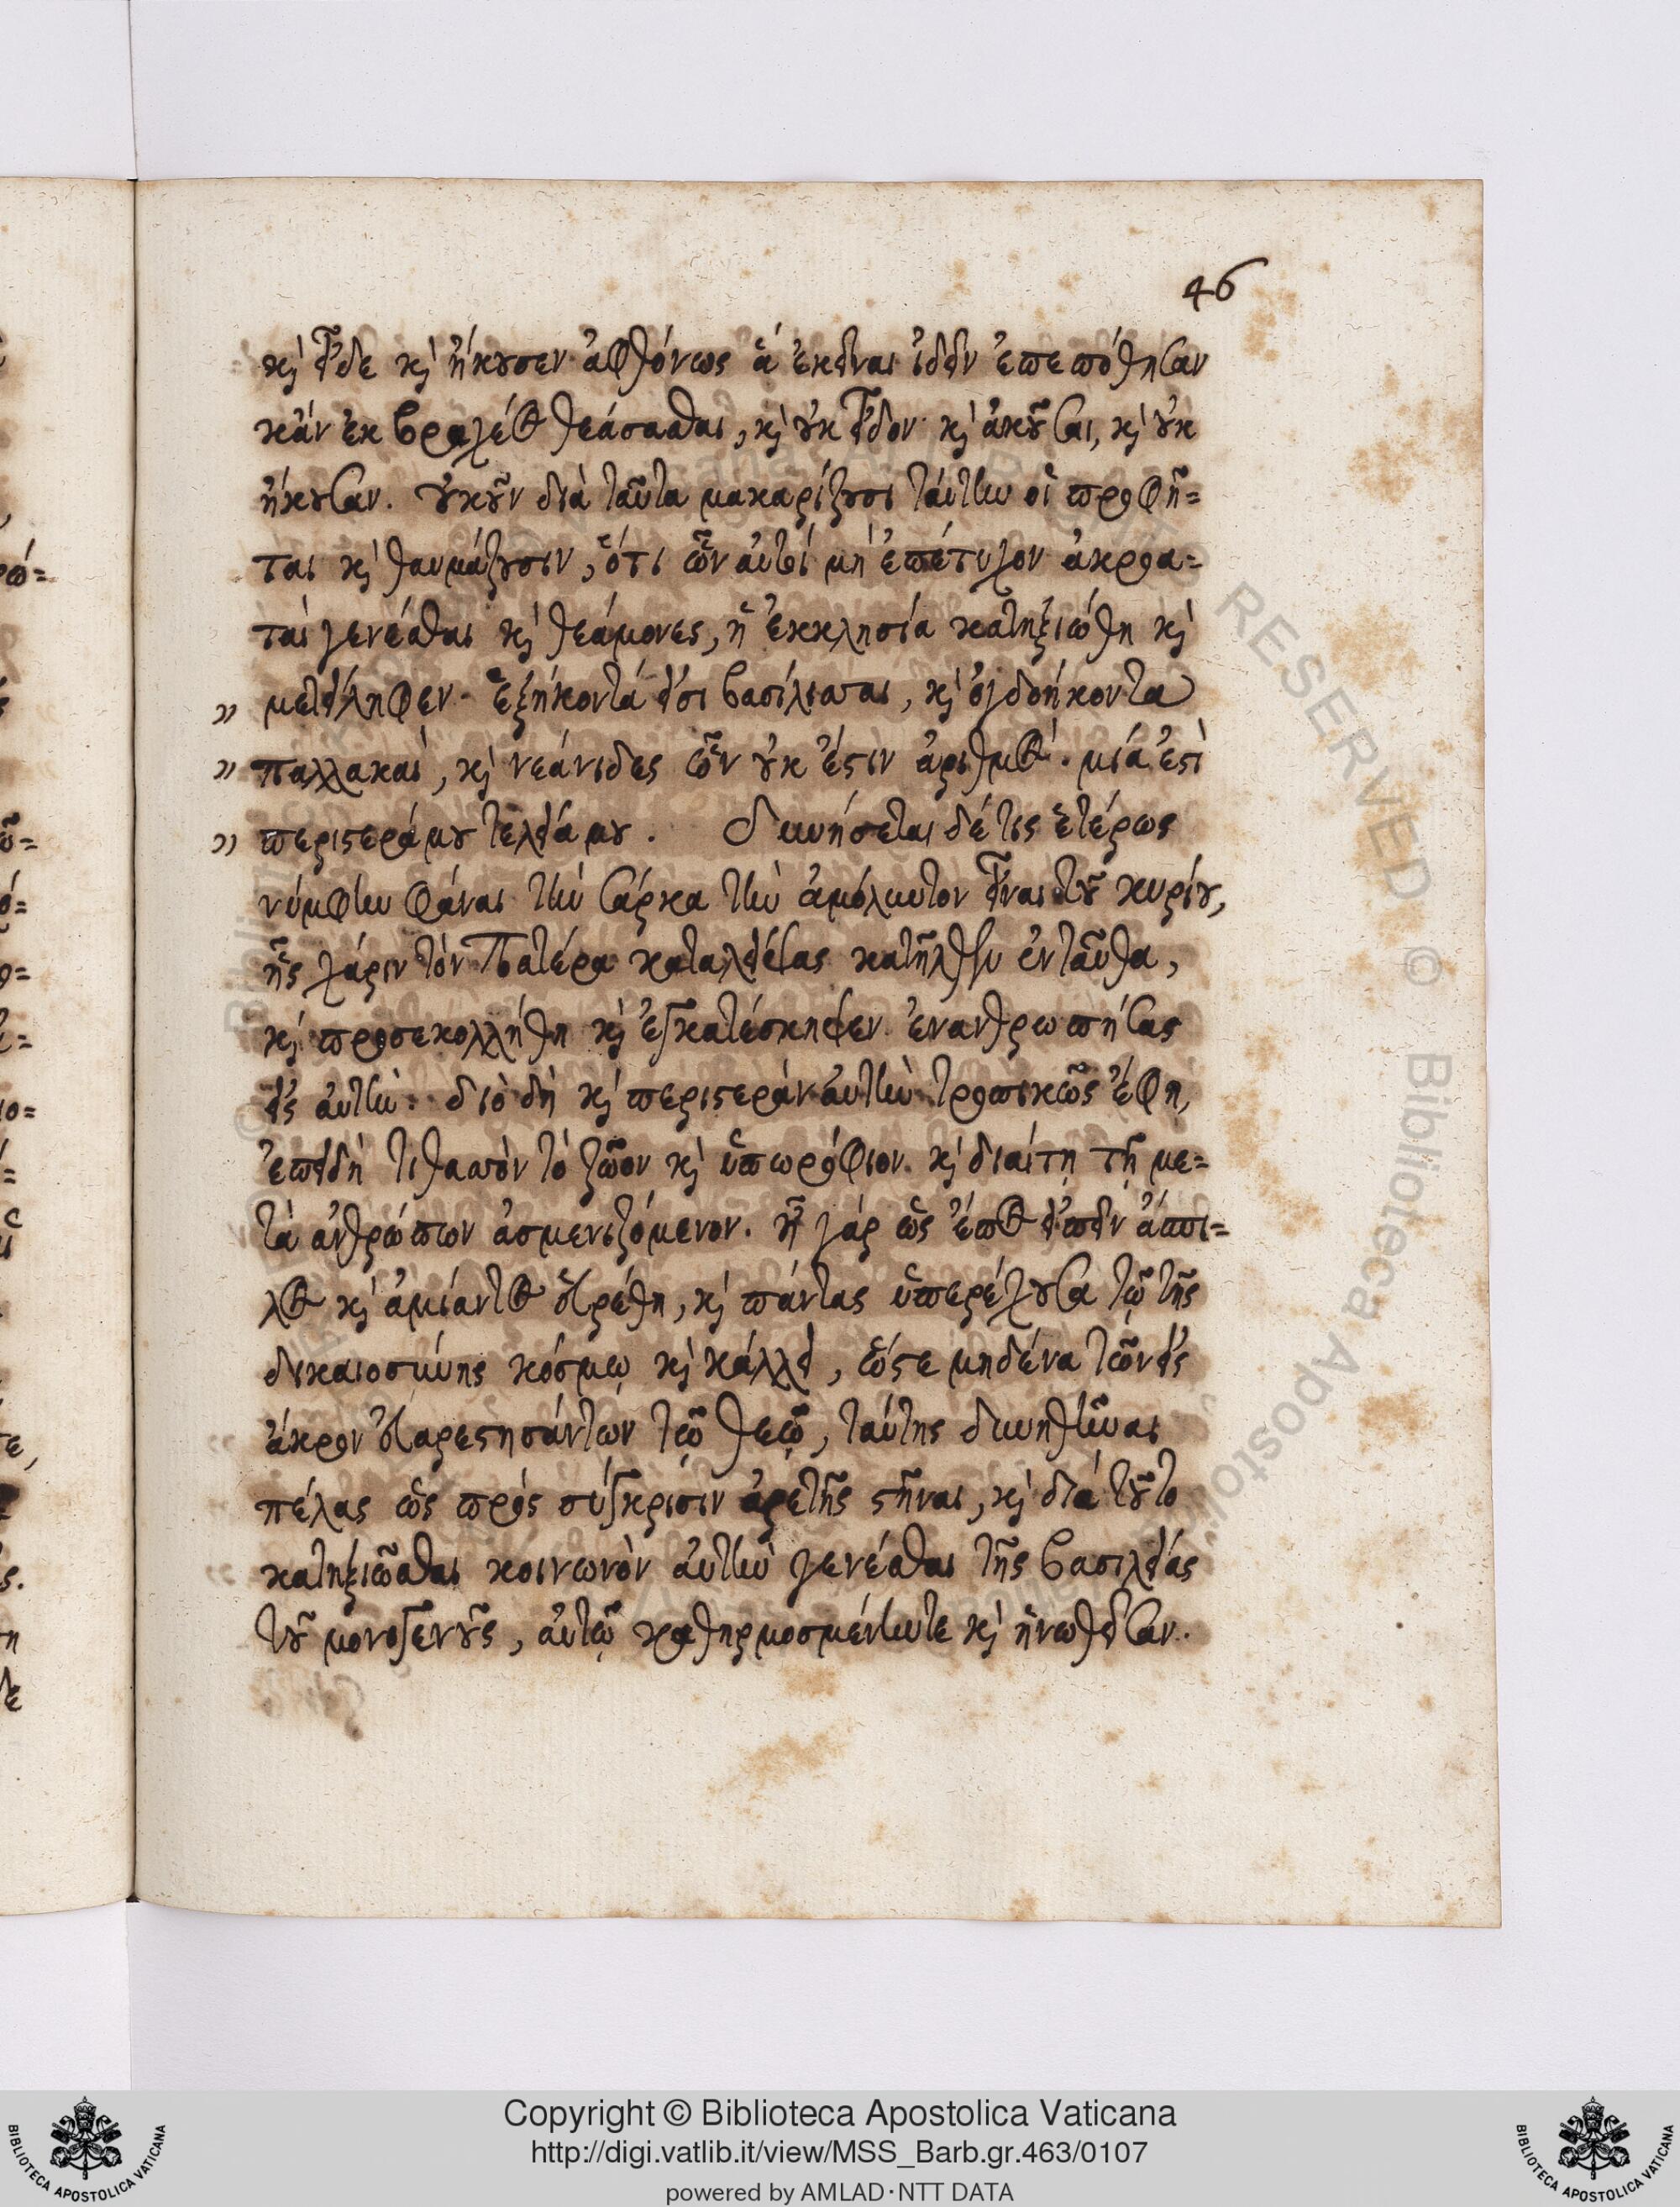 46
καὶ εἶδε καὶ ἤκουσεν ἀφθόνως ἃ ἐκεῖναι ἰδεῖν ἐπεπόθησαν
κἂν ἐκ βραχέος θεάσασθαι, καὶ οὐκ εἶδον· καὶ ἀκοῦσαι, καὶ οὐκ
ἤκουσαν. οὐκοῦν διὰ ταῦτα μακαρίζουσι ταύτην οἱ προφῆ=
ται καὶ θαυμάζουσιν, ὅτι ὧν αὐτοί μὴ ἐπέτυχον ἀκροα=
ταὶ γενέσθαι καὶ θεάμονες, ἡ ἐκκλησία κατηξιώθη καὶ
» μετείληφεν. Ἑξήκοντά εἰσι βασίλισσαι, καὶ ὀγδοήκοντα
» παλλακαὶ, καὶ νεάνιδες ὧν οὐκ ἔστιν ἀριθμός. μία ἐστὶ
» περιστερά μου τελεία μου. Δυνήσεται δέ τις ἑτέρως
νύμφην φάναι τὴν σάρκα τὴν ἀμόλυντον εἶναι τοῦ κυρίου,
ἧς χάριν τὸν Πατέρα καταλείψας κατῆλθεν ἐνταῦθα,
καὶ προσεκολλήθη καὶ ἐγκατέσκηψεν ἐνανθρωπήσας
εἰς αὐτὴν. διὸ δὴ καὶ περιστερὰν αὐτὴν τροπικῶς ἔφη,
ἐπειδὴ τιθασὸν τὸ ζῶον καὶ ὑπωρόφιον. καὶ διαίτῃ τῇ με=
τὰ ἀνθρώπων ἀσμενιζόμενον. ἦ γάρ ὡς ἔπος εἰπεῖν ἄσπι=
λος καὶ ἀμίαντος εὑρέθη, καὶ πάντας ὑπερέχουσα τῷ τῆς
δικαιοσύνης κόσμῳ καὶ κάλλει, ὥστε μηδένα τῶν εἰς
ἄκρον εὐαρεστησάντων τῷ θεῷ, ταύτης δυνηθῆναι
πέλας ὡς πρὸς σύγκρισιν ἀρετῆς στῆναι, καὶ διὰ τοῦτο
κατηξιῶσθαι κοινωνὸν αὐτὴν γενέσθαι τῆς βασιλείας
τοῦ μονογενοῦς, αὐτῷ καθηρμοσμένην τε καὶ ἑνωθεῖσαν.
Copyright © Biblioteca Apostolica Vaticana
http://digi.vatlib.it/view/MSS_Barb.gr.463/0107
powered by AMLAD·NTT DATA
BIBLIOTECA APOSTOLICA VATICANA
BIBLIOTECA APOSTOLICA VATICANA